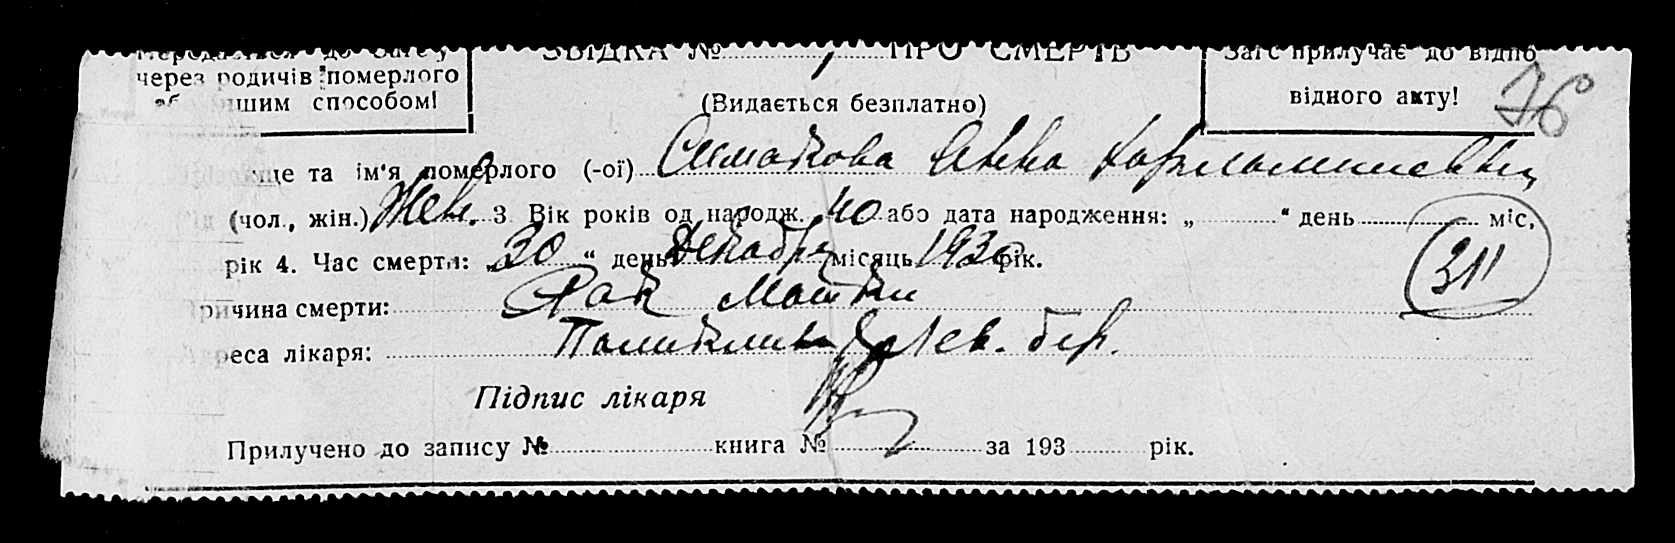 через родичів померлого
шим способом!
ЗВІДКА № ПРО СМЕРТЬ
(Видається безплатно)
Загс прилучає до відпо
відного акту!
76
ще та ім'я померлого (-ої) Симакова Анна
(чол., жін.) Жен. 3 Вік років од народж. 40 або дата народження: „ “ день міс.
рік 4. Час смерти: „30“ день Декабря місяць 193 рік.
311
ричина смерти: Рак матки
реса лікаря: Лев. бер.
Підпис лікаря
Прилучено до запису № книга № за 193 рік.